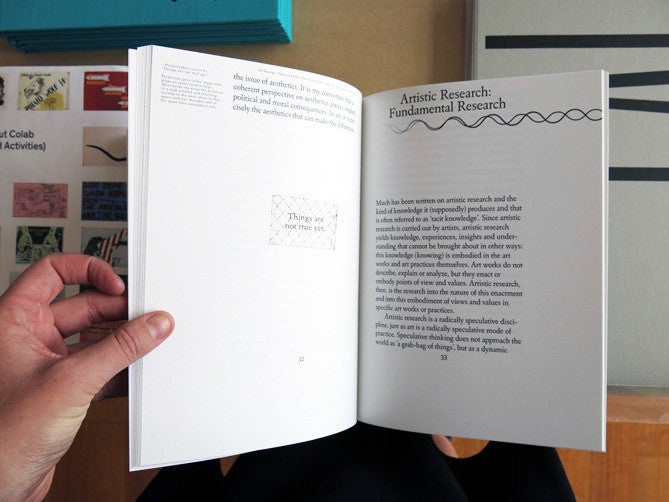 ut Colab
d Activities)
the issue of aesthetics. It is my conviction that a
coherent perspective on aesthetics always implies
political and moral consequences. In art it is pre-
cisely the aesthetics that can make the difference.
Things are
not true yet.
32
Artistic Research:
Fundamental Research
Much has been written on artistic research and the
kind of knowledge it (supposedly) produces and that
is often referred to as 'tacit knowledge'. Since artistic
research is carried out by artists, artistic research
yields knowledge, experiences, insights and under-
standing that cannot be brought about in other ways:
this knowledge (knowing) is embodied in the art
works and art practices themselves. Art works do not
describe, explain or analyze, but they enact or
embody points of view and values. Artistic research,
then, is the research into the nature of this enactment
and into this embodiment of views and values in
specific art works or practices.
Artistic research is a radically speculative disci-
pline, just as art is a radically speculative mode of
practice. Speculative thinking does not approach the
world as 'a grab-bag of things', but as a dynamic
33